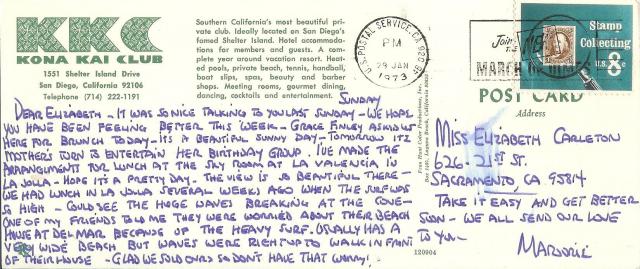 KKC
KONA KAI CLUB
1551 Shelter Island Drive
San Diego, California 92106
Telephone (714) 222-1191
Southern California's most beautiful pri-
vate club. Ideally located on San Diego's
famed Shelter Island. Hotel accommoda-
tions for members and guests. A com-
plete year around vacation resort. Heat-
ed pools, private beach, tennis, handball,
boat slips, spas, beauty and barber
shops. Meeting rooms, gourmet dining,
dancing, cocktails and entertainment.
SUNDAY
DEAR ELIZABETH - IT WAS SO NICE TALKING TO YOU LAST SUNDAY - WE HOPE
YOU HAVE BEEN FEELING BETTER THIS WEEK - GRACE FINLEY ASKED US
HERE FOR BRUNCH TODAY - IT'S A BEAUTIFUL SUNNY DAY - TOMORROW IT'S
MOTHER'S TURN TO ENTERTAIN HER BIRTHDAY GROUP. I'VE MADE THE
ARRANGEMENTS FOR LUNCH AT THE SKY ROOM AT LA VALENCIA IN
LA JOLLA - HOPE IT'S A PRETTY DAY - THE VIEW IS SO BEAUTIFUL THERE -
WE HAD LUNCH IN LA JOLLA SEVERAL WEEKS AGO WHEN THE SURF WAS
SO HIGH - COULD SEE THE HUGE WAVES BREAKING AT THE COVE -
ONE OF MY FRIENDS TOLD ME THEY WERE WORRIED ABOUT THEIR BEACH
HOUSE AT DEL MAR BECAUSE OF THE HEAVY SURF. USUALLY HAS A
VERY WIDE BEACH BUT WAVES WERE RIGHT UP TO WALK IN FRONT
OF THEIR HOUSE - GLAD WE SOLD OURS SO DON'T HAVE THAT WORRY!
U.S. POSTAL SERVICE, CA 920
PM
29 JAN
1973
MARCH OF DIMES
Stamp
Collecting
U.S. 8c
POST CARD
Address
MISS ELIZABETH CARLETON
626 - 21ST ST.
SACRAMENTO, CA 95814
TAKE IT EASY AND GET BETTER
SOON - WE ALL SEND OUR LOVE
TO YOU -
MARJORIE
120904